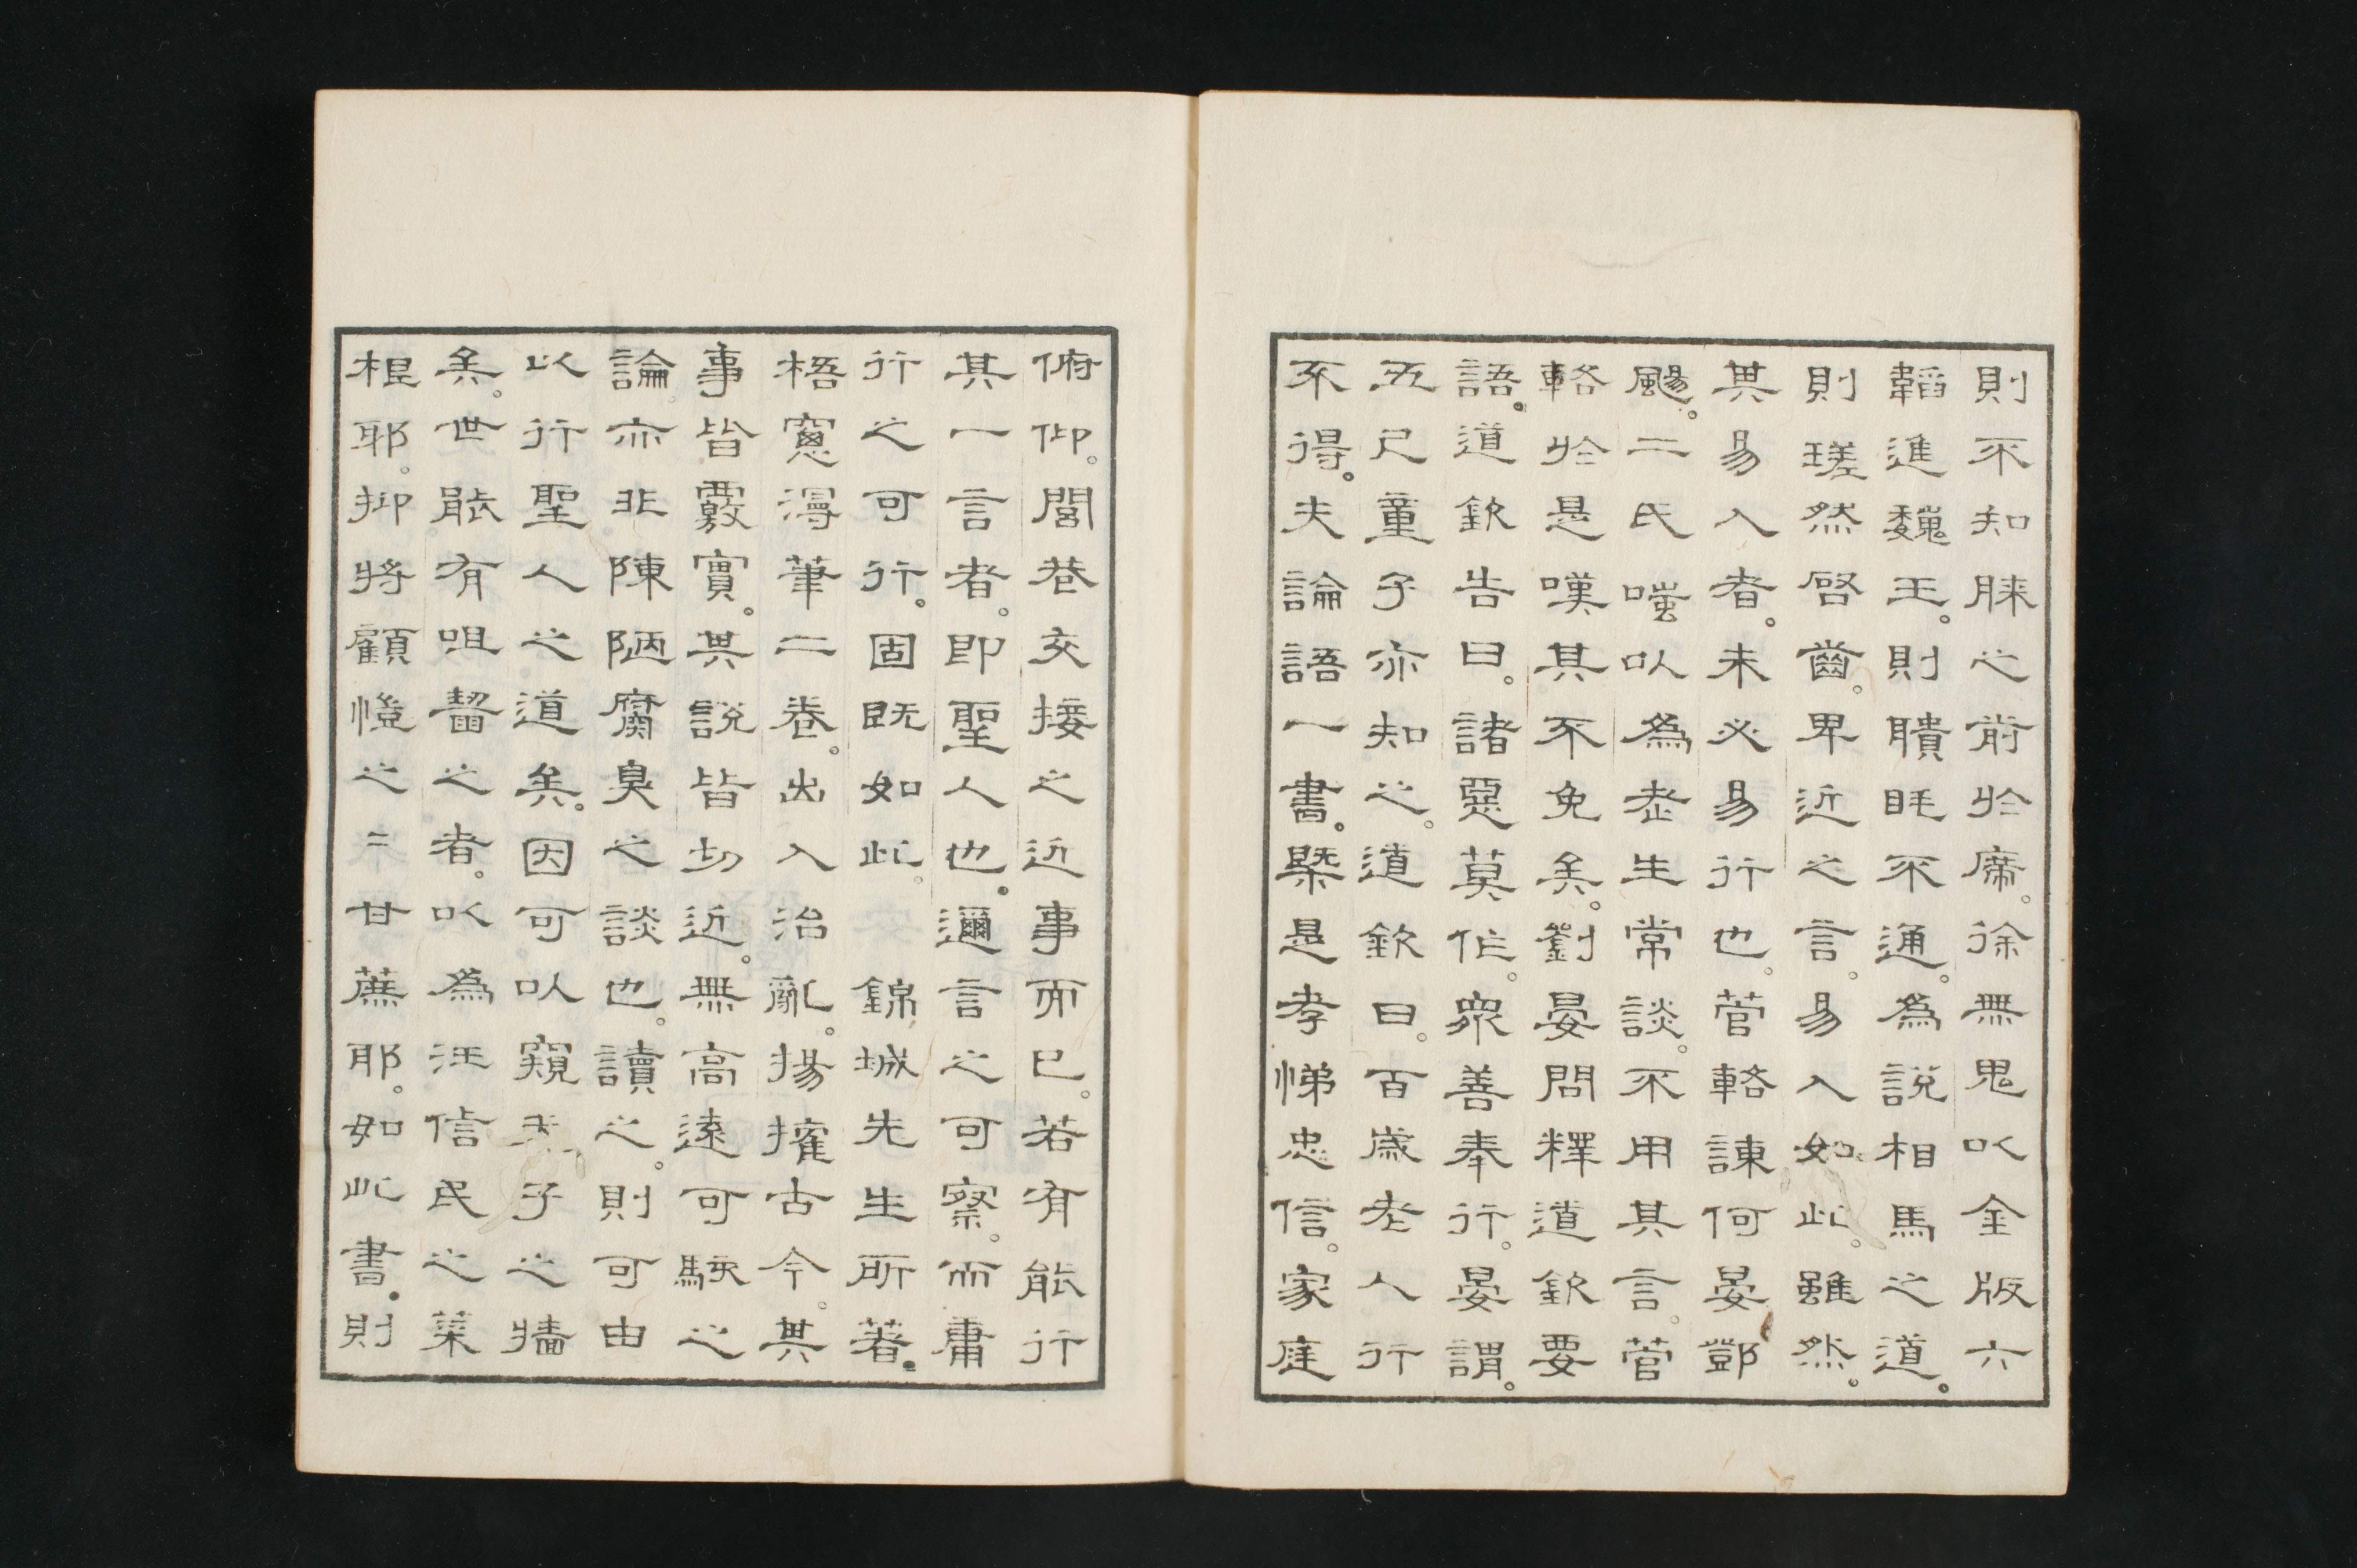 則不知脨之前於席。徐無鬼以金版六
韜進魏王。則瞶眊不通。爲說相馬之道。
則瑳然啓齒。卑近之言。易入如此。雖然。
其易入者。未必易行也。菅輅諫何晏鄧
颺。二氏嗤以爲老生常談。不用其言。菅
輅於是嘆其不免矣。劉晏問釋道欽要
語。道欽告曰。諸惡莫作。衆善奉行。晏謂。
五尺童子亦知之。道欽曰。百歲老人行
不得。夫論語一書。槩是孝悌忠信。家庭
俯仰。閭巷交接之近事而已。若有能行
其一言者。即聖人也。邇言之可察。而庸
行之可行。固既如此。錦城先生所著。
梧窻漫筆二卷。出入治亂。揚搉古今。其
事皆覈實。其說皆切近。無高遠可駭之
論。亦非陳陋腐臭之談也。讀之。則可由
以行聖人之道矣。因可以窺夫子之牆
矣。世能有咀齧之者。以爲汪信民之菜
根耶。抑將顧愷之之甘蔗耶。如此書。則